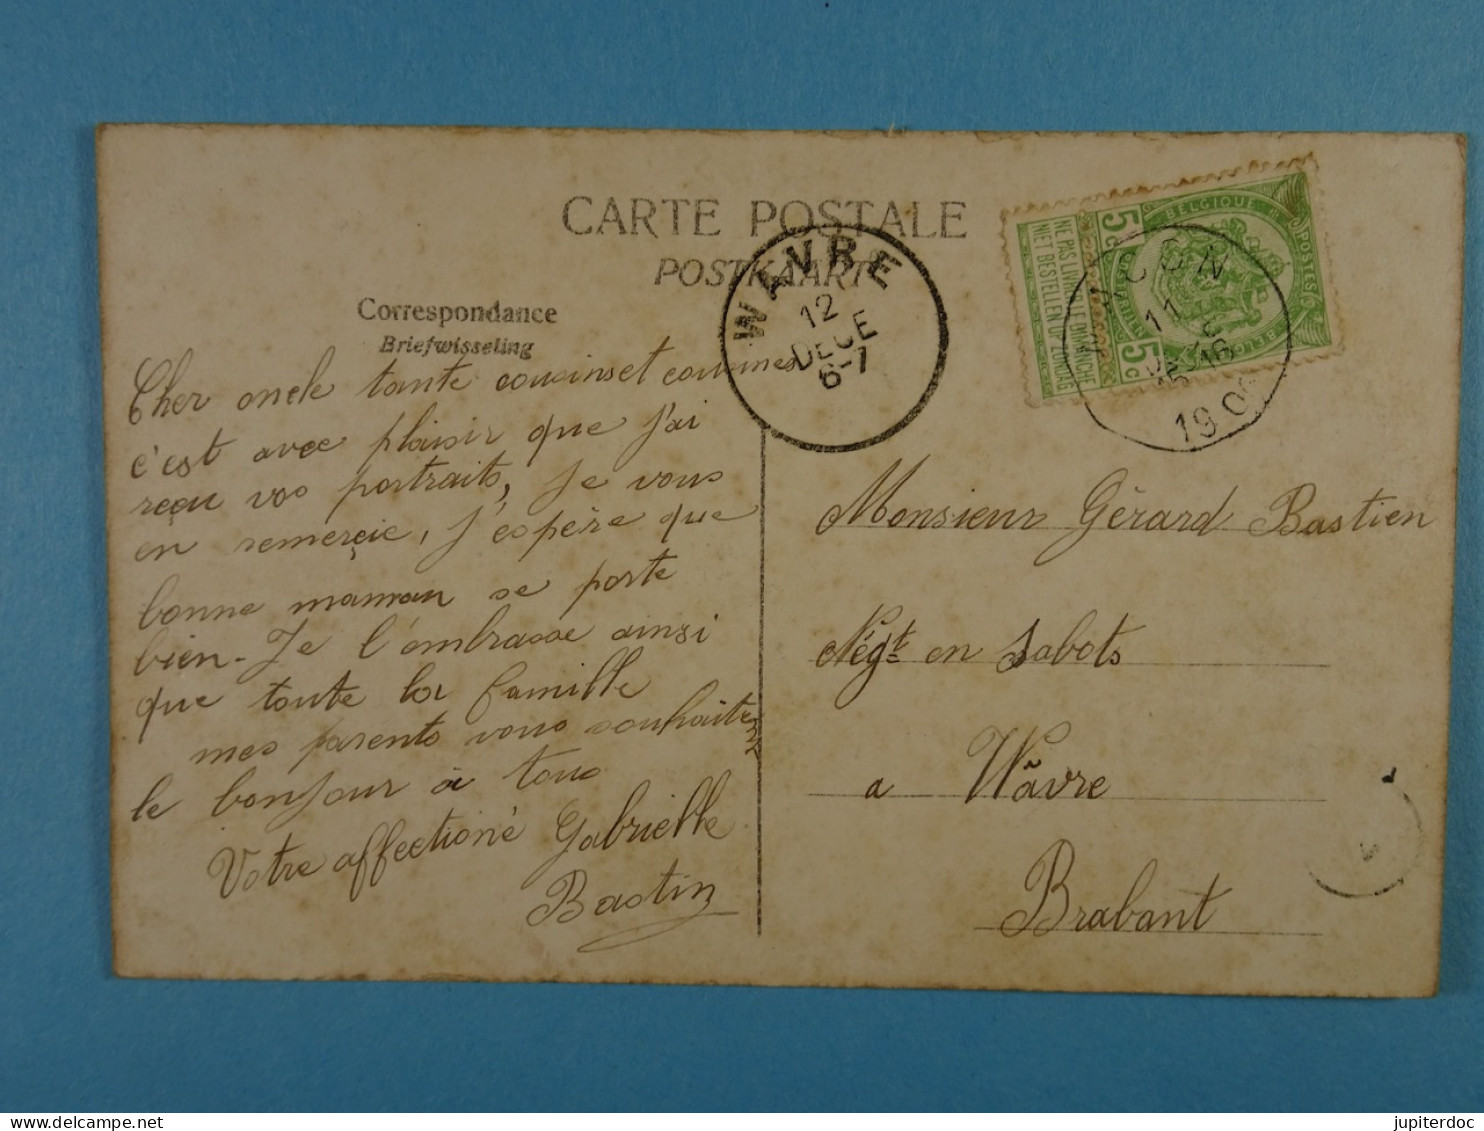 CARTE POSTALE
POSTKAART
Correspondance
Briefwisseling
Cher oncle tante cousins et cousines
c'est avec plaisir que j'ai
reçu vos portraits, Je vous
en remerçie, J'espère que
bonne maman se porte
bien. Je l'embrasse ainsi
que toute la famille
mes parents vous souhaitent
le bonjour à tous
Votre affectioné Gabrielle
Bastin
WAVRE
12
DECE
6-7
BELGIQUE
POSTES
5c
5c
NE PAS LIVRER LE DIMANCHE
NIET BESTELLEN OP ZONDAG
11
15-16
190
Monsieur Gérard Bastien
Négt en Sabots
a Wavre
Brabant
jupiterdoc